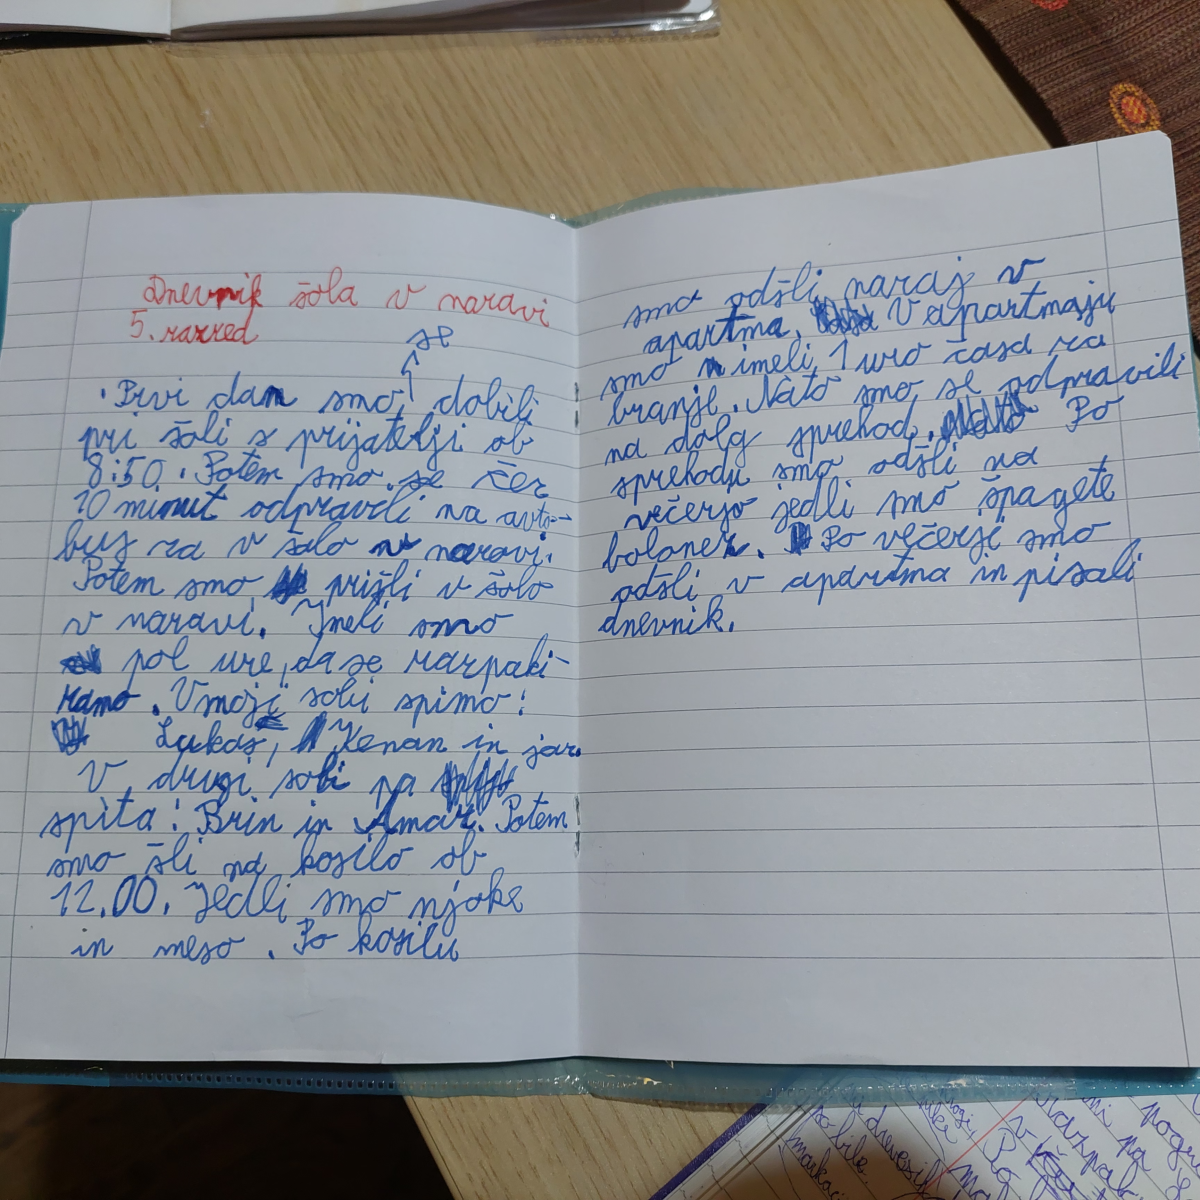 Dnevnik šola v naravi
5. razred
se
Prvi dan smo dobili
pri šoli s prijatelji ob
8:50. Potem smo se čez
10 minut odpravili na avto-
bus za v šolo v naravi.
Potem smo prišli v šolo
v naravi. Imeli smo
pol ure, da se razpaki-
ramo. V moji sobi spimo:
Lukas, Kenan in jaz.
V drugi sobi pa
spita: Brin in Amar. Potem
smo šli na kosilo ob
12.00. Jedli smo njoke
in meso. Po kosilu
smo odšli nazaj v
apartma. V apartmaju
smo imeli 1 uro časa za
branje. Nato smo se odpravili
na dolg sprehod. Po
sprehodu smo odšli na
večerjo jedli smo špagete
bolonez. Po večerji smo
odšli v apartma in pisali
dnevnik.